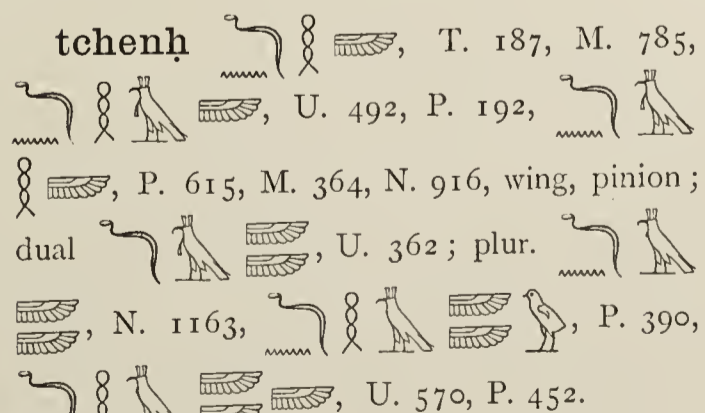 tchenḥ 𓆓𓈖𓎛𓆃, T. 187, M. 785,
𓆓𓈖𓎛𓅘𓆃, U. 492, P. 192, 𓆓𓈖𓅘
𓎛𓆃, P. 615, M. 364, N. 916, wing, pinion;
dual 𓆓𓅘𓆃𓆃, U. 362; plur. 𓆓𓈖𓅘
𓆃𓆃, N. 1163, 𓆓𓈖𓎛𓅘𓆃𓆃𓅱, P. 390,
𓆓𓎛𓅘𓆃𓆃𓆃, U. 570, P. 452.